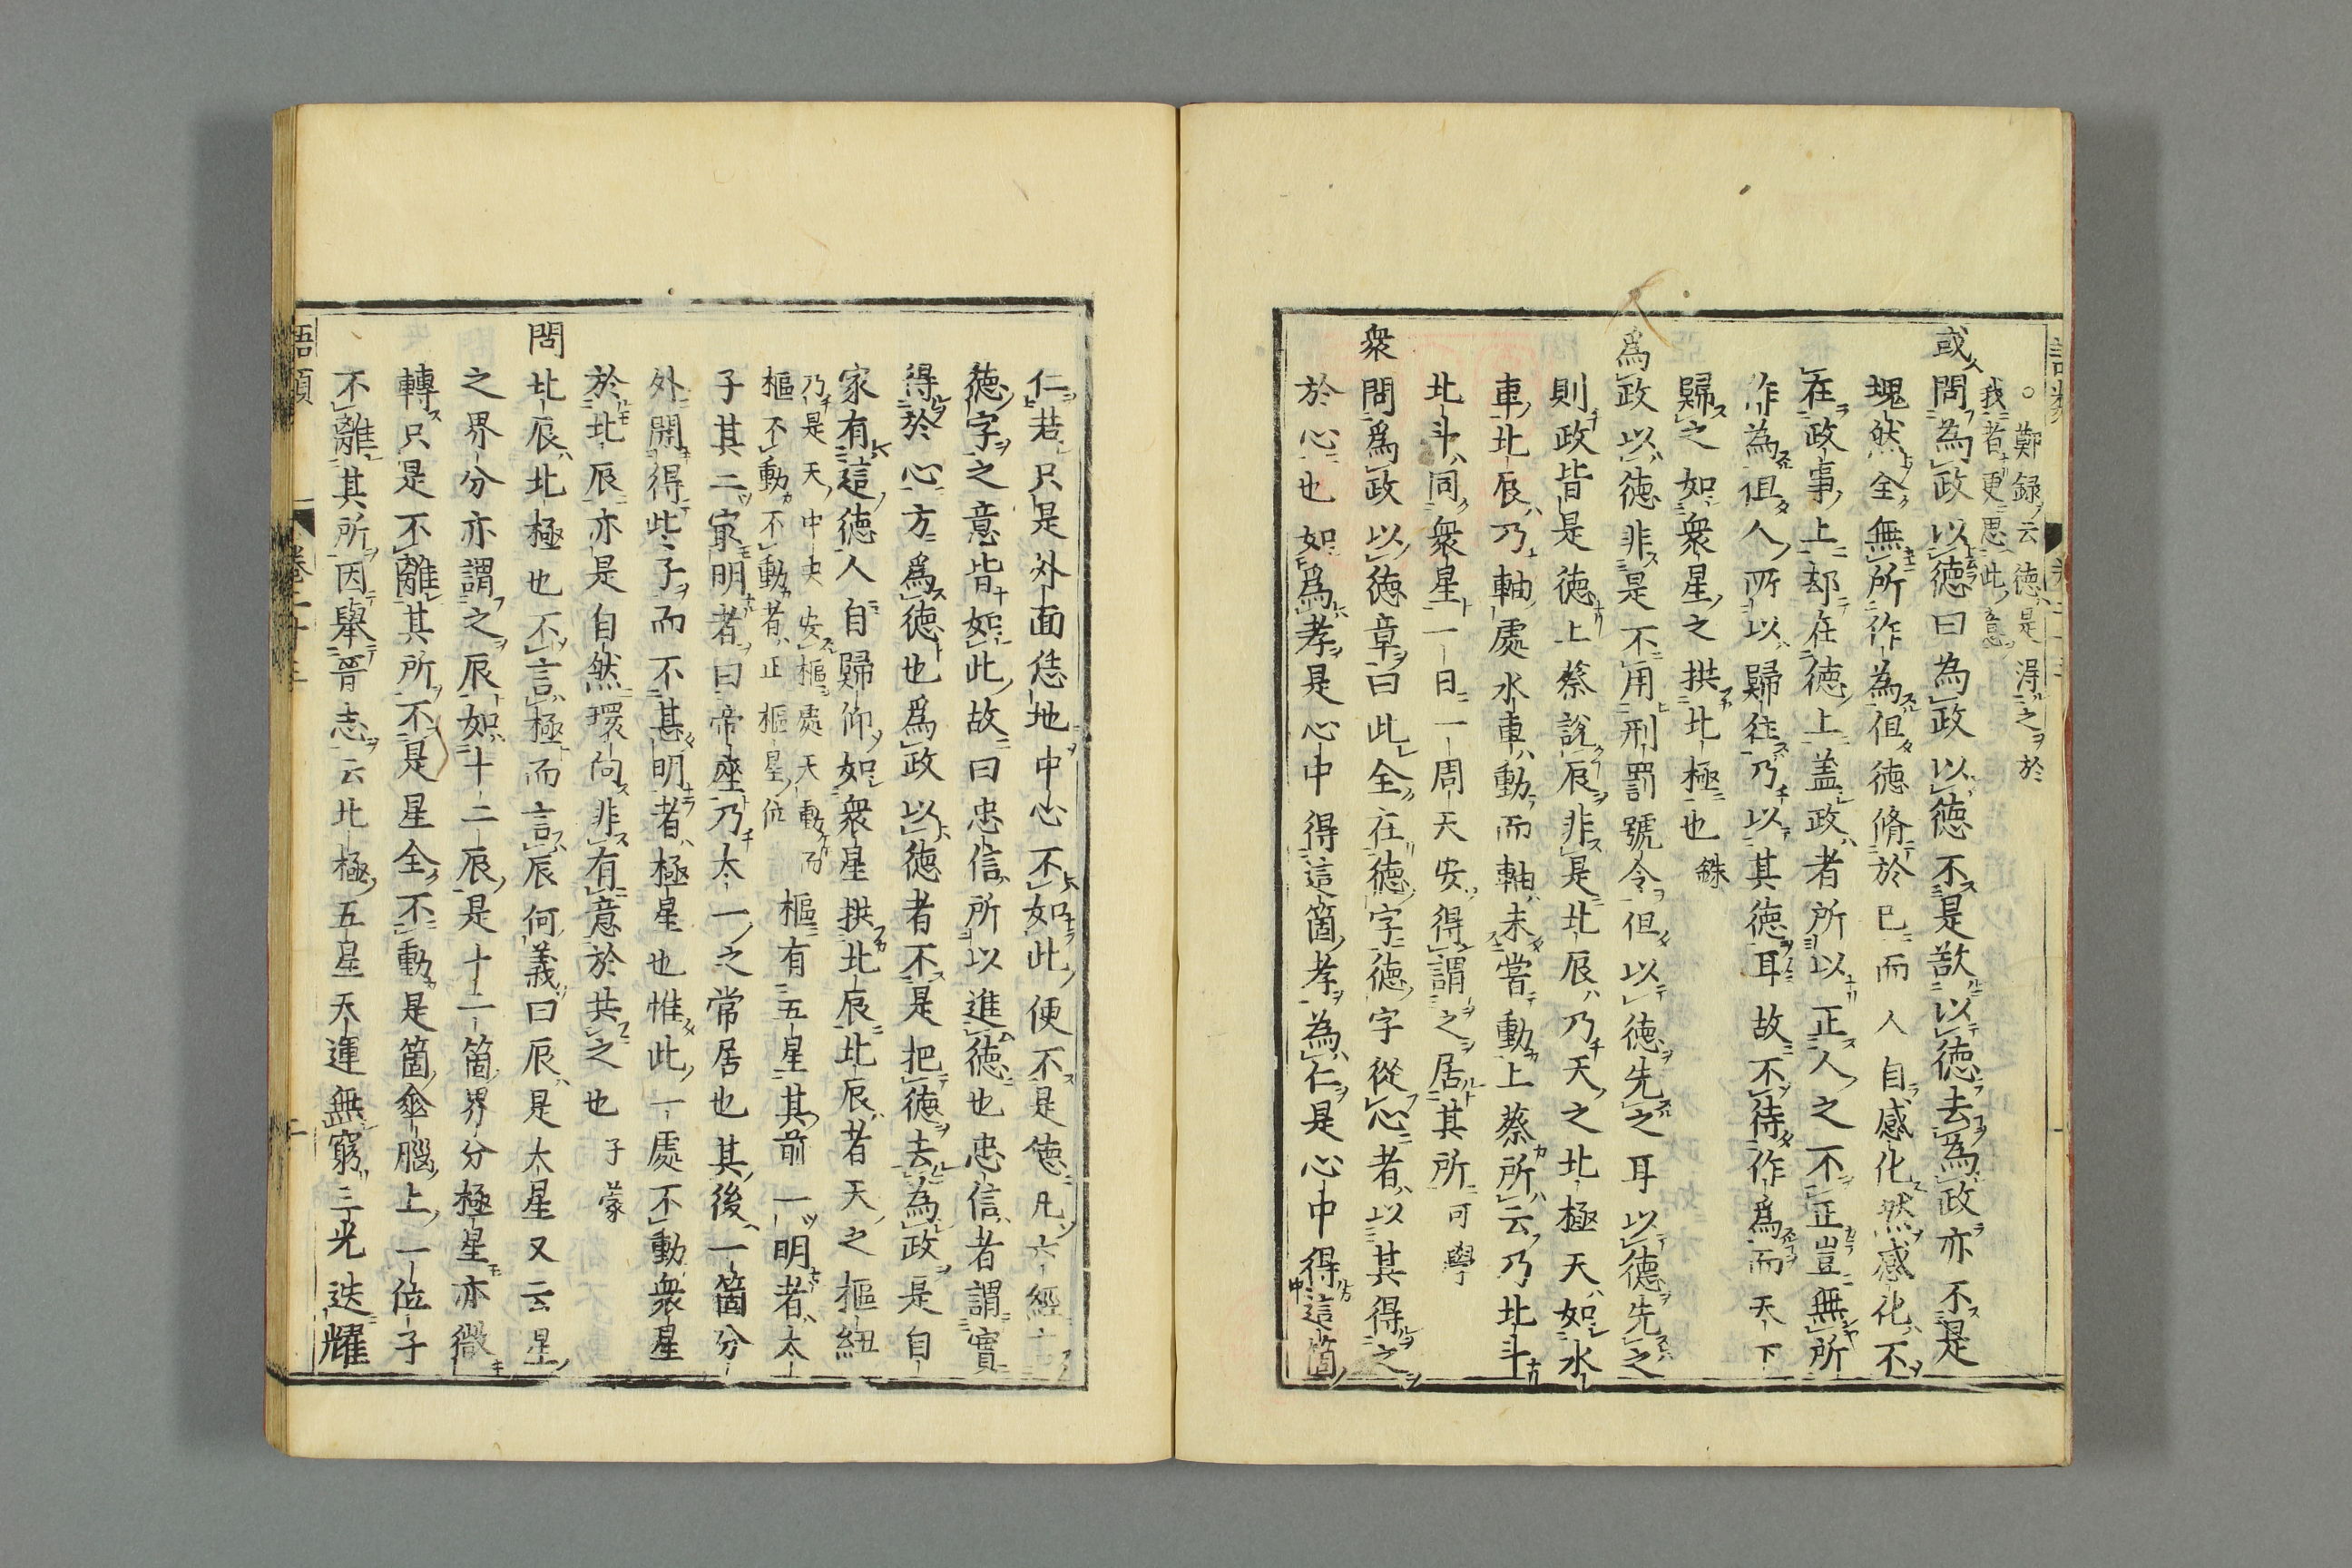 ○鄭録云德是得之於
我者更思此意
或問為政以德曰為政以德不是欲以德去為政亦不是
塊然全無所作為但德脩於已而人自感化然感化不
在政事上却在德上盖政者所以正人之不正豈無所
作為但人所以歸往乃以其德耳故不待作爲而天下
歸之如衆星之拱北極也 銖
爲政以德非是不用刑罰號令但以德先之耳以德先之
則政皆是德上蔡說辰非是北辰乃天之北極天如水
車北辰乃軸處水車動而軸未嘗動上蔡所云乃北斗
北斗同衆星一日一周天安得謂之居其所 可學
衆問爲政以德章曰此全在德字德字從心者以其得之
於心也如爲孝是心中得這箇孝為仁是心中得這箇
仁若只是外面恁地中心不如此便不是德凡六經
德字之意皆如此故曰忠信所以進德也忠信者謂實
得於心方爲德也爲政以德者不是把德去為政是自
家有這德人自歸仰如衆星拱北辰北辰者天之樞紐
乃是天中央安樞處天動而
樞不動不動者正樞星位
樞有五星其前一明者太
子其二最明者曰帝座乃太一之常居也其後一箇分
外開得些子而不甚明者極星也惟此一處不動衆星
於北辰亦是自然環向非有意於共之也 子蒙
問北辰北極也不言極而言辰何義曰辰是大星又云星
之界分亦謂之辰如十二辰是十二箇界分極星亦微
轉只是不離其所不是星全不動是箇傘腦上一位子
不離其所因舉晉志云北極五星天運無窮三光迭耀
語類
卷二十三
二